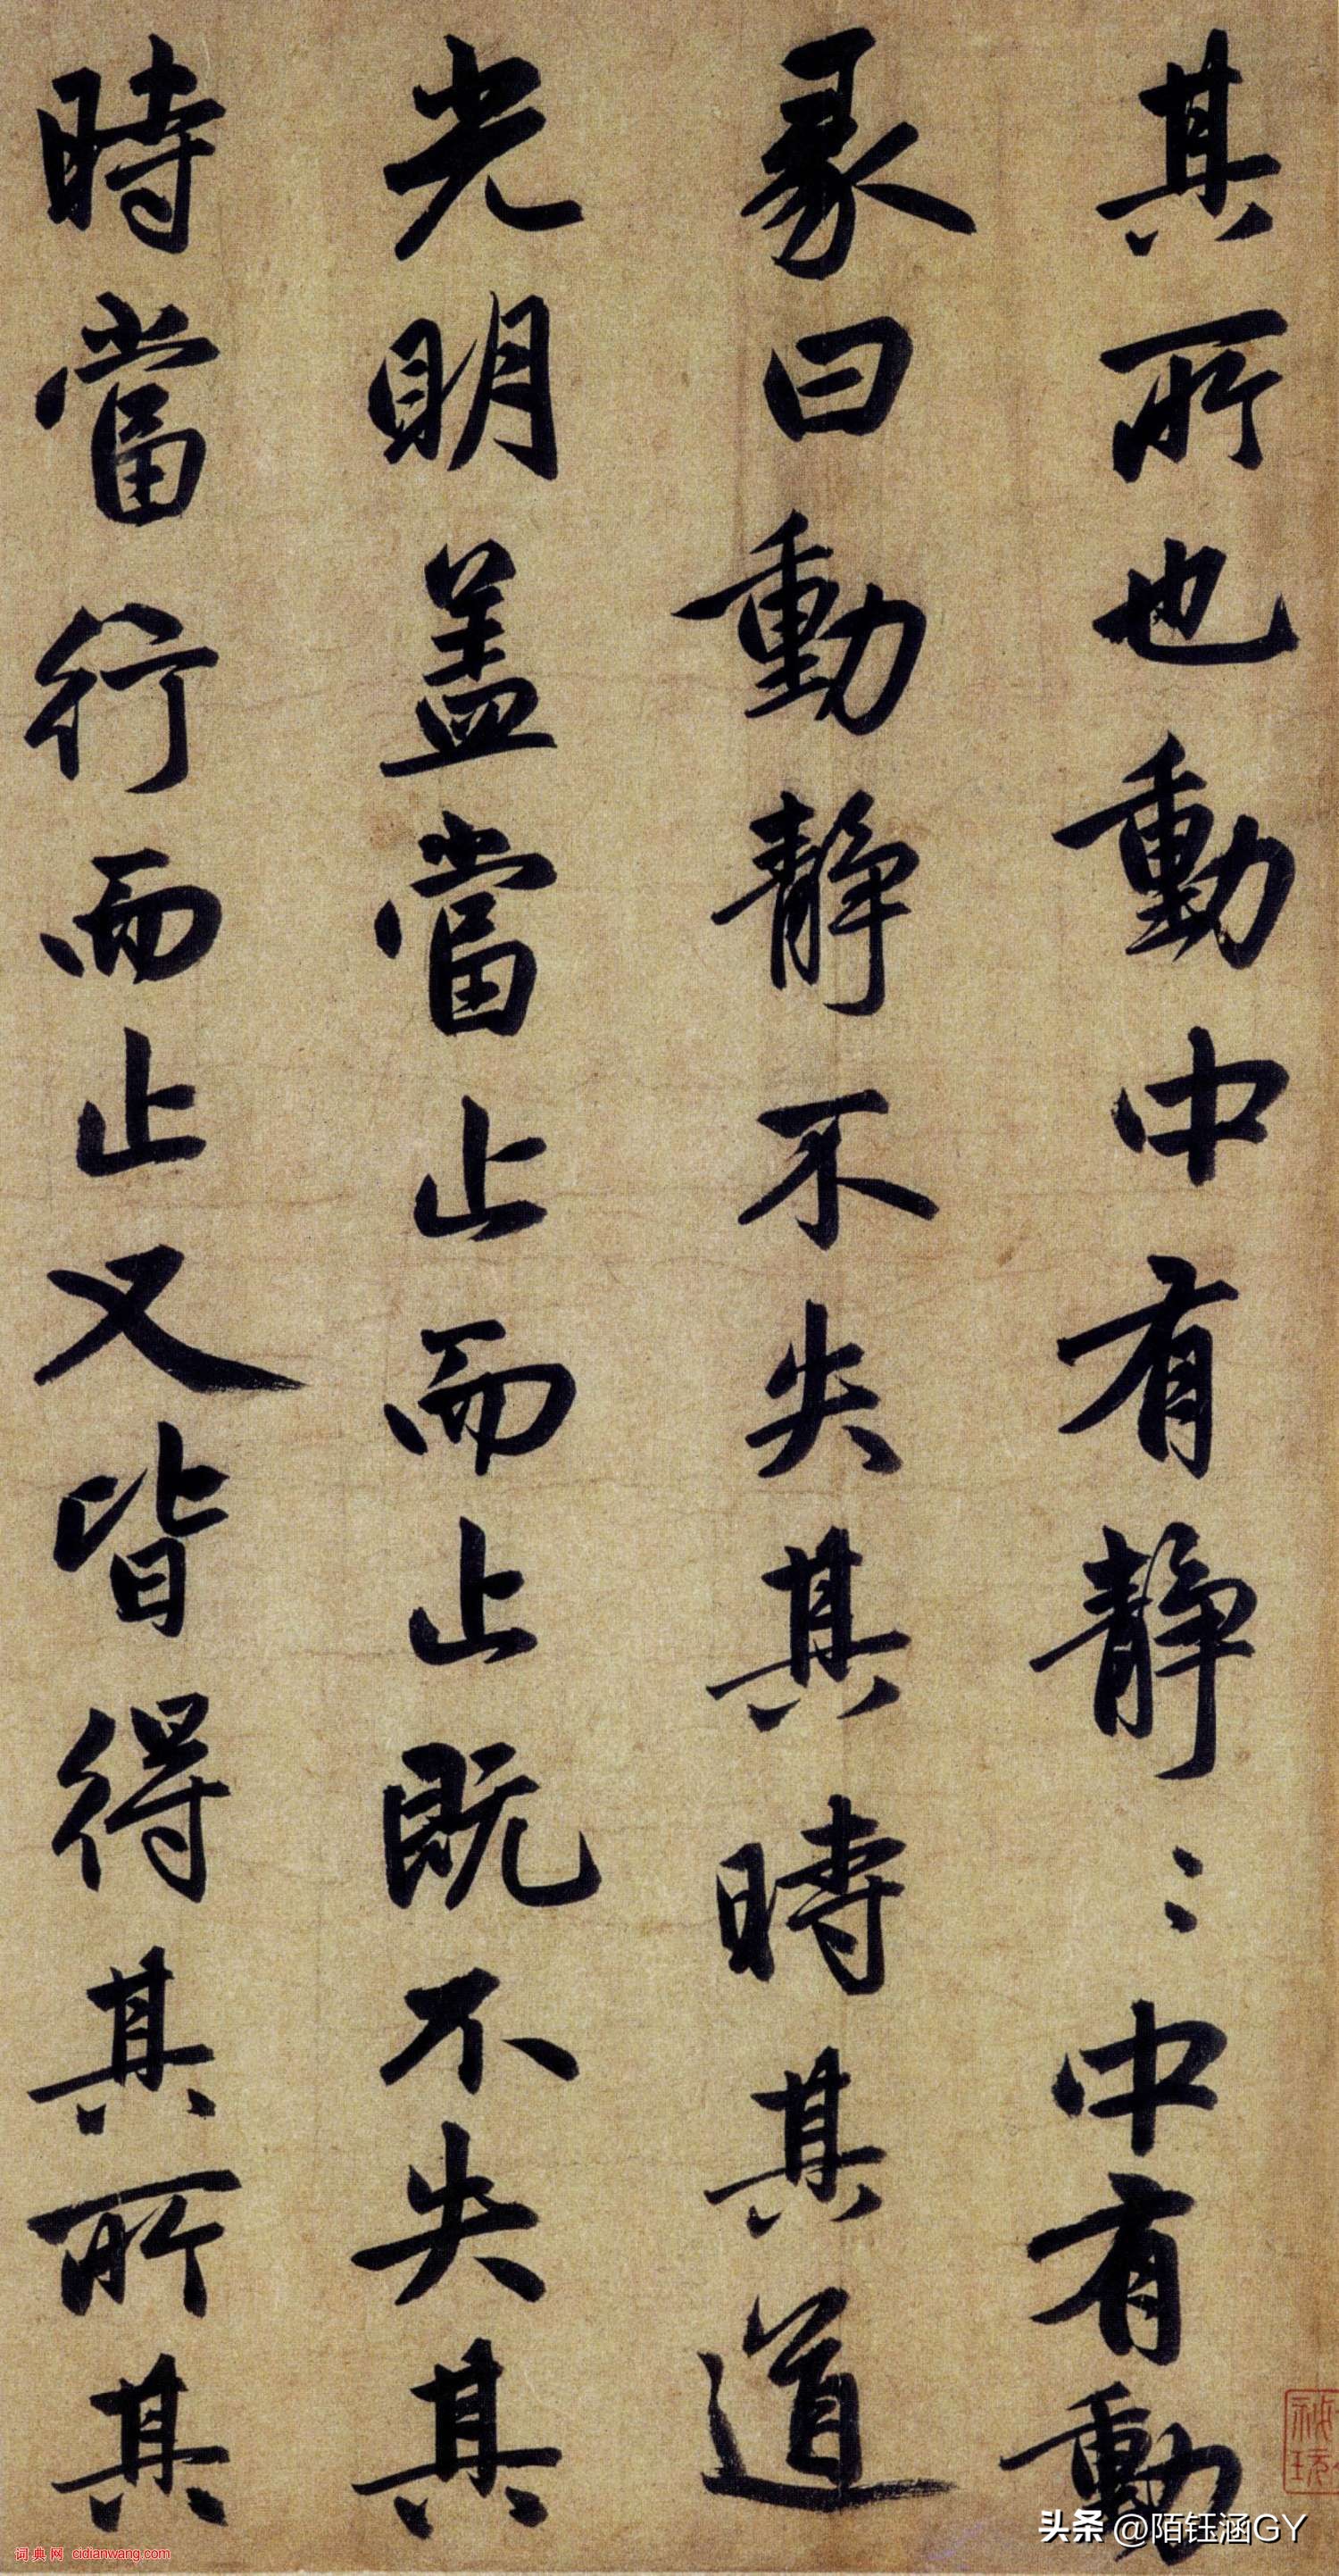 其所也動中有静〻中有動
彖曰動静不失其時其道
光明盖當止而止既不失其
時當行而止又皆得其所其
头条 @陌钰涵GY
词典网 cidianwang.com